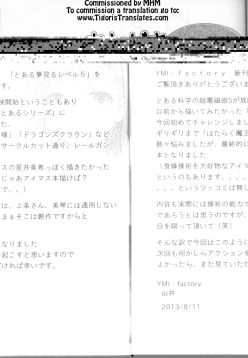 Commissioned by MHM
To commission a translation go to:
www.TigorisTranslates.com
「とある夢見るレベル5」を
す。
映開始ということもあり
とあるシリーズ」に
た。
様」「ドラゴンズクラウン」など
サークルカット通り、レールガン
スの星井美希っぽく描きたかった
じゃあアイマス本描けば?
で。。)
は、上条さん、美琴には通用しない
まぁそこは創作ですからと
なりました
起こすと思いますので
だければ幸いです。
YMI・factory 新刊
ご覧頂きありがとうございま
とある科学の超電磁砲Sが放
以前から描いてみたかった「
今回初めてチャレンジしま
ギリギリまで「はたらく魔王
散々悩みましたが、最終的に
本となりました
(食蜂操祈を大好物なアイマ
というのもあります。。。
。。。というツッコミは無し
内容も実際には操祈の能力で
であろうとは思うのですが、
目を瞑って頂いて(笑)
そんな訳で今回はこのように
次回も何かしらアクションを
よかったら、また見ていただ
YMI・factory
山井
2013/8/11